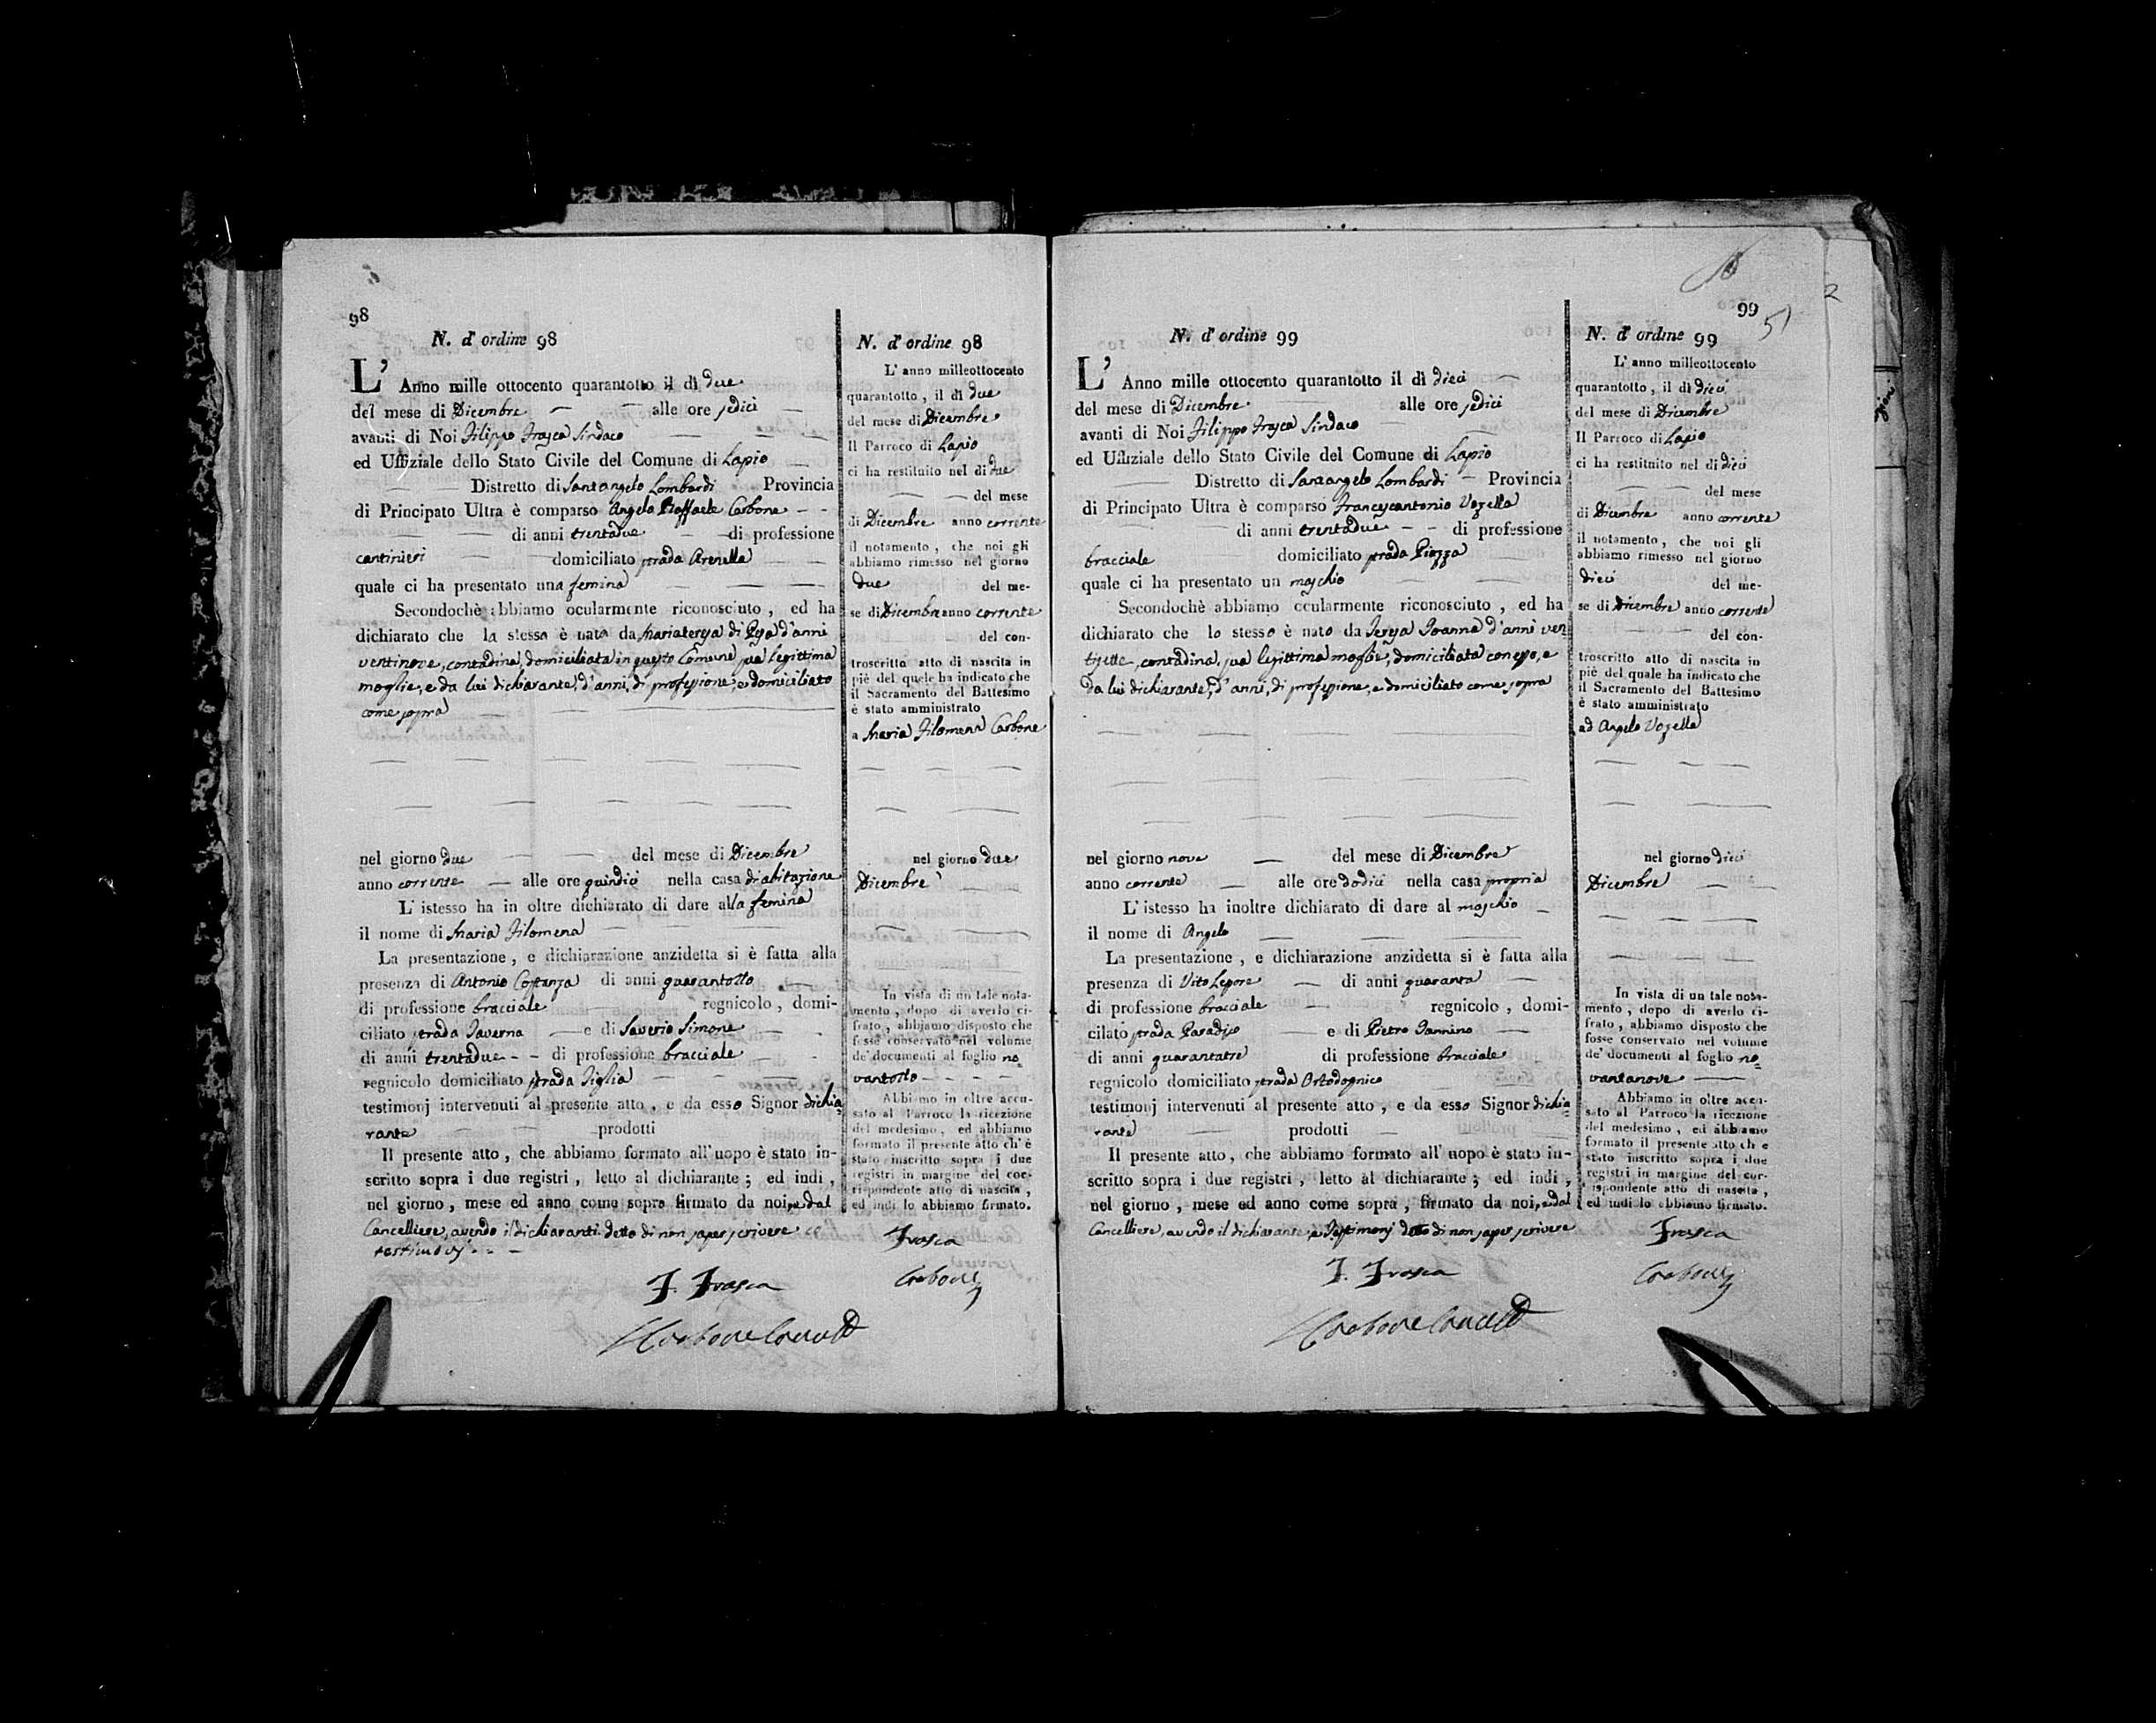 98
N. d' ordine 98
L' Anno mille ottocento quarantotto il dì due
del mese di Dicembre alle ore sedici
avanti di Noi Filippo Frasca Sindaco
ed Uffiziale dello Stato Civile del Comune di Lapio
Distretto di Santangelo Lombardi Provincia
di Principato Ultra è comparso Angelo Raffaele Carbone
di anni trentadue di professione
cantinieri domiciliato strada Arenella
quale ci ha presentato una femina
Secondochè abbiamo ocularmente riconosciuto, ed ha
dichiarato che la stessa è nata da Mariateresa di d'anni
ventinove, contadina, domiciliata in questo Comune, sua legittima
moglie, e da lui dichiarante, d'anni, di professione, e domiciliato
come sopra
nel giorno due del mese di Dicembre
anno corrente alle ore quindici nella casa di abitazione
L' istesso ha in oltre dichiarato di dare alla femina
il nome di Maria Filomena
La presentazione, e dichiarazione anzidetta si è fatta alla
presenza di Antonio Costanza di anni quarantotto
di professione bracciale regnicolo, domi-
ciliato strada Taverna e di Saverio Simone
di anni trentadue di professione bracciale
regnicolo domiciliato strada
testimonj intervenuti al presente atto, e da esso Signor dichia
rante prodotti
Il presente atto, che abbiamo formato all' uopo è stato in-
scritto sopra i due registri, letto al dichiarante; ed indi,
nel giorno, mese ed anno come sopra firmato da noi, e dal
Cancelliere, avendo il dichiarante detto di non saper scrivere
testimonj
F. Frasca
Carbone
N. d' ordine 98
L' anno milleottocento
quarantotto, il dì due
del mese di Dicembre
Il Parroco di Lapio
ci ha restituito nel dì due
del mese
di Dicembre anno corrente
il notamento, che noi gli
abbiamo rimesso nel giorno
due del me-
se di Dicembre anno corrente
del con-
troscritto atto di nascita in
piè del quale ha indicato che
il Sacramento del Battesimo
è stato amministrato
a Maria Filomena Carbone
nel giorno due
Dicembre
In vista di un tale nota-
mento, dopo di averlo ci-
frato, abbiamo disposto che
fosse conservato nel volume
de' documenti al foglio no
vantotto
Abbiamo in oltre accu-
sato al Parroco la ricezione
del medesimo, ed abbiamo
formato il presente atto ch' è
stato inscritto sopra i due
registri in margine del cor-
rispondente atto di nascita,
ed indi lo abbiamo firmato.
Frasca
Carbone
99
51
2
N. d' ordine 99
L' Anno mille ottocento quarantotto il dì dieci
del mese di Dicembre alle ore sedici
avanti di Noi Filippo Frasca Sindaco
ed Uffiziale dello Stato Civile del Comune di Lapio
Distretto di Santangelo Lombardi Provincia
di Principato Ultra è comparso Francescantonio Vozella
di anni trentadue di professione
bracciale domiciliato strada Piazza
quale ci ha presentato un maschio
Secondochè abbiamo ocularmente riconosciuto, ed ha
dichiarato che lo stesso è nato da Teresa Joanna d'anni ven
tisette, contadina, sua legittima moglie, domiciliata con esso, e
da lui dichiarante, d' anni, di professione, e domiciliato come sopra
nel giorno nove del mese di Dicembre
anno corrente alle ore dodici nella casa propria
L' istesso ha inoltre dichiarato di dare al maschio
il nome di Angelo
La presentazione, e dichiarazione anzidetta si è fatta alla
presenza di Vito Lepore di anni quaranta
di professione bracciale regnicolo, domi-
cilato strada Paradiso e di Pietro Jannino
di anni quarantatre di professione bracciale
regnicolo domiciliato strada Ortodognico
testimonj intervenuti al presente atto, e da esso Signor dichia
rante prodotti
Il presente atto, che abbiamo formato all' uopo è stato in-
scritto sopra i due registri, letto al dichiarante; ed indi,
nel giorno, mese ed anno come sopra, firmato da noi, e dal
Cancelliere, avendo il dichiarante, e Testimonj detto di non saper scrivere
F. Frasca
Carbone
N. d' ordine 99
L' anno milleottocento
quarantotto, il dì dieci
del mese di Dicembre
Il Parroco di Lapio
ci ha restituito nel dì dieci
del mese
di Dicembre anno corrente
il notamento, che noi gli
abbiamo rimesso nel giorno
dieci del me-
se di Dicembre anno corrente
del con-
troscritto atto di nascita in
piè del quale ha indicato che
il Sacramento del Battesimo
è stato amministrato
ad Angelo Vozella
nel giorno dieci
Dicembre
In vista di un tale nota-
mento, dopo di averlo ci-
frato, abbiamo disposto che
fosse conservato nel volume
de' documenti al foglio no
vantanove
Abbiamo in oltre accu-
sato al Parroco la ricezione
del medesimo, ed abbiamo
formato il presente atto ch e
stato inscritto sopra i due
registri in margine del cor-
rispondente atto di nascita,
ed indi lo abbiamo firmato.
Frasca
Carbone